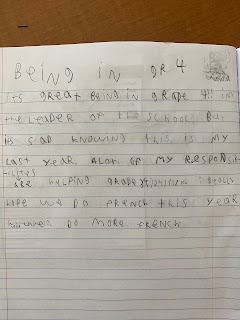 BEING IN GR 4
ITS GREAT BEING IN GRADE 4!! Im
the LEADER OF THE SCHOOL! But
its SAD KNOWING this is my
Last YEAR. ALOt OF MY RESPONSI
BILITIES
ARE HELPING GRADE
HOPE WE DO FRENCH THIS YEAR
DO MORE FRENCH